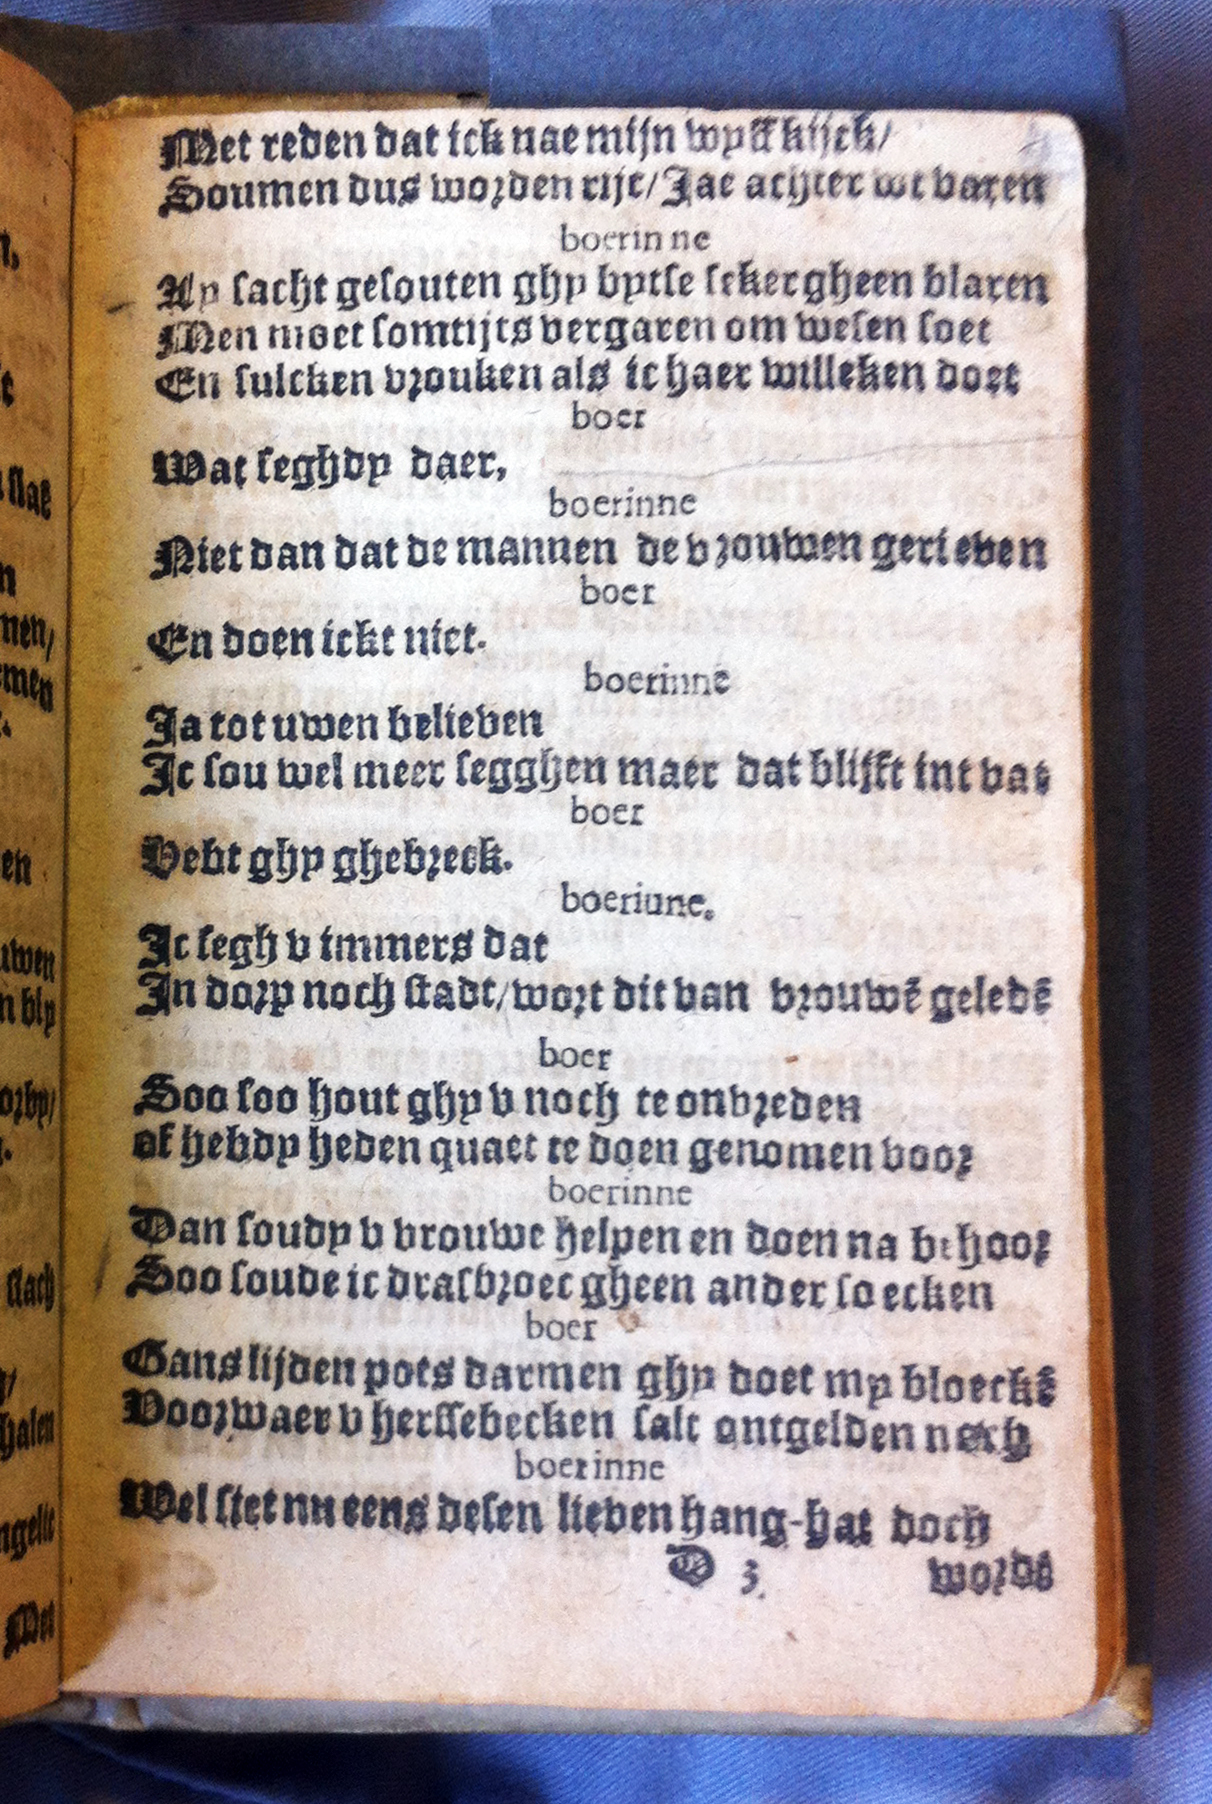 Met reden dat ick nae mijn wyff kijck/
Soumen dus worden rijc/Jae achter wt varen
boerinne
Ay sacht gesouten ghy bytse seker gheen blaren
Men moet somtijts vergaren om wesen soet
En sulcken vrouken als ic haer willeken doet
boer
Wat seghdy daer,
boerinne
Niet dan dat de mannen de vrouwen gerieven
boer
En doen ickt niet.
boerinne
Ja tot uwen believen
Jc sou wel meer segghen maer dat blijft int vat
boer
Hebt ghy ghebreck.
boeriune.
Jc segh v immers dat
Jn dorp noch stadt/wort dit van vrouwē geledē
boer
Soo soo hout ghy v noch te onvreden
of hebdy heden quaet te doen genomen voor
boerinne
Dan soudy v vrouwe helpen en doen na behoor
Soo soude ic drasbroec gheen ander soecken
boer
Gans lijden pots darmen ghy doet my bloeckē
Voorwaer v herssebecken salt ontgelden noch
boerinne
Wel siet nu eens desen lieven hang-hat doch
D 3.
wordē
n,
slae
n
nen/
men
en
uwen
n bly
orby/
slach
halen
ngelic
Met